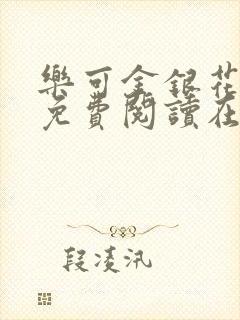 樂可金銀花
免費閱讀在
段凌汛